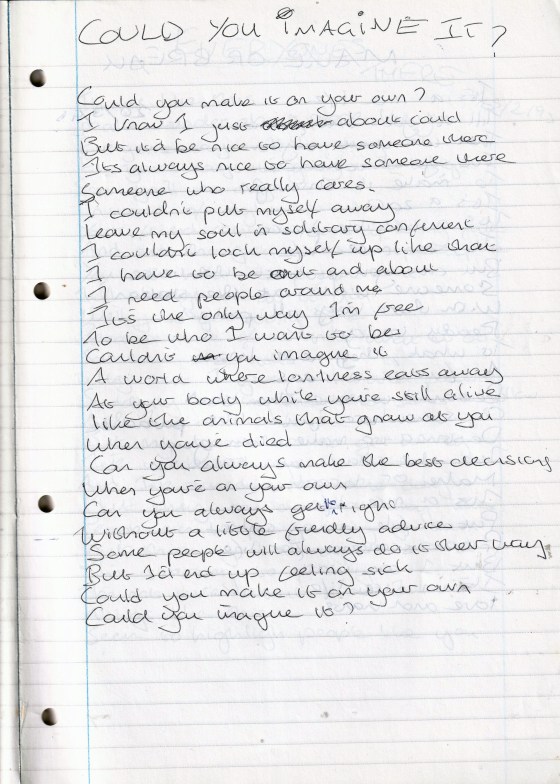 COULD YOU IMAGINE IT?
Could you make it on your own?
I know I just about could
But it'd be nice to have someone there
Its always nice to have someone there
Someone who really cares.
I couldn't put myself away
Leave my soul in solitary confinent
I couldn't lock myself up like that
I have to be out and about
I need people around me
It's the only way I'm free
To be who I want to be.
Couldn't you imague it
A world where lonliness eats away
At your body while you're still alive
like the animals that gnaw at you
when you've died
Can you always make the best decisions
When you're on your own
Can you always get it right
Without a little friendly advice
Some people will always do it their way
But I'd end up feeling sick
Could you make it on your own
Could you imague it?